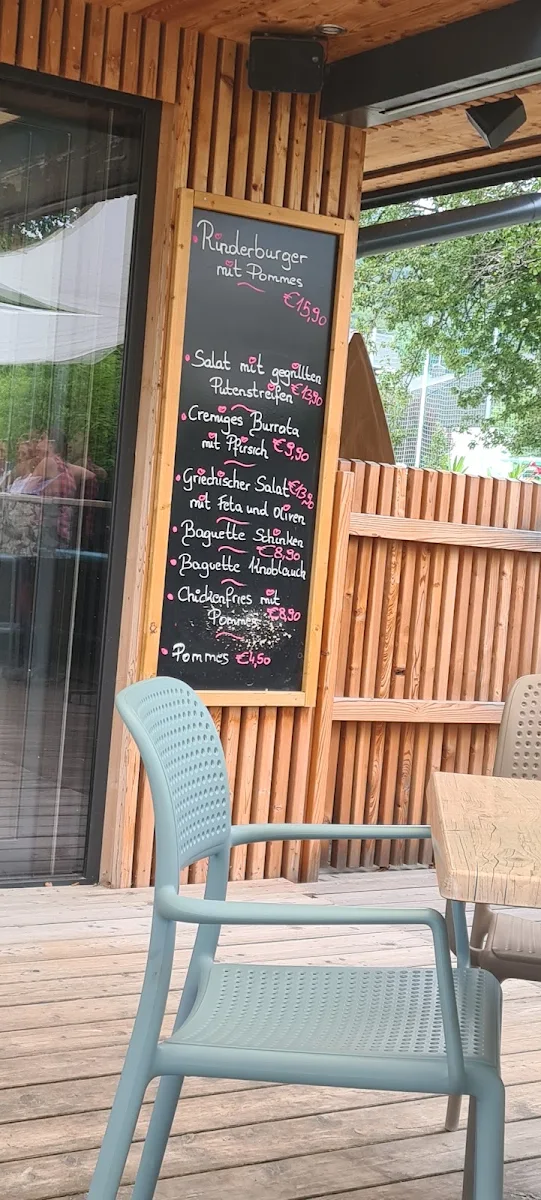 Rinderburger
mit Pommes
€15,90
Salat mit gegrillten
Putenstreifen €13,90
Cremiges Burrata
mit Pfirsich €9,90
Griechischer Salat €13,90
mit Feta und Oliven
Baguette Schinken
€8,90
Baguette Knoblauch
Chickenfries mit
Pommes €8,90
Pommes €4,50